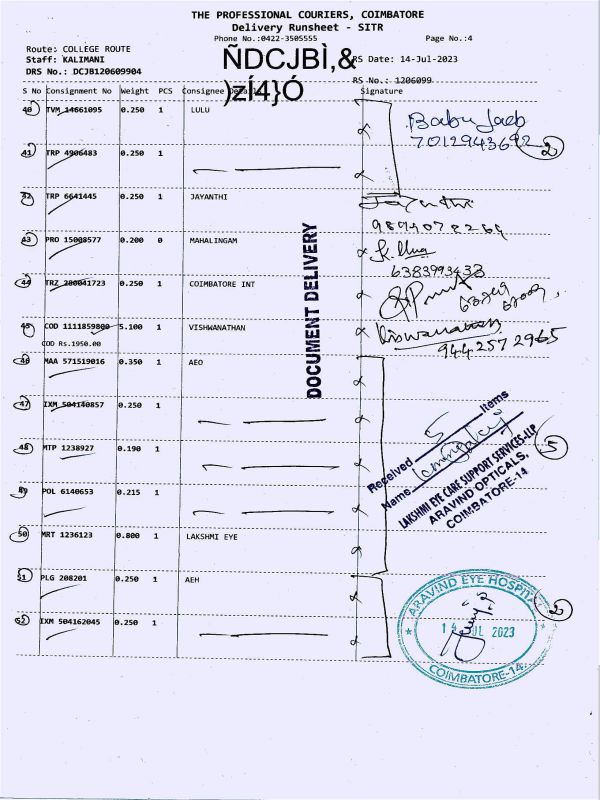 THE PROFESSIONAL COURIERS, COIMBATORE
Delivery Runsheet - SITR
Phone No.:0422-3505555 Page No.:4
Route: COLLEGE ROUTE
Staff: KALIMANI RS Date: 14-Jul-2023
DRS No.: DCJB120609904
ÑDCJBÌ,&
)zÍ4}Ó
RS No.: 1206099
S No Consignment No Weight PCS Consignee Detail Signature
40 TVM 14661095 0.250 1 LULU
Babu Jacb
7012943692 2
41 TRP 4906483 0.250 1
42 TRP 6641445 0.250 1 JAYANTHI Jayanthi
9894078264
43 PRO 15008577 0.200 0 MAHALINGAM
6383993433
44 TRZ 280041723 0.250 1 COIMBATORE INT
45 COD 1111859800 5.100 1 VISHWANATHAN Viswanathan
COD Rs.1950.00 9442572965
46 MAA 571519016 0.350 1 AEO
47 IXM 504140857 0.250 1
48 MTP 1238927 0.190 1
49 POL 6140653 0.215 1
50 MRT 1236123 0.800 1 LAKSHMI EYE
51 PLG 208201 0.250 1 AEH
52 IXM 504162045 0.250 1
DOCUMENT DELIVERY
Received 5 Items
Name
LAKSHMI EYE CARE SUPPORT SERVICES-LLP
ARAVIND OPTICALS,
COIMBATORE-14
5
ARAVIND EYE HOSPITAL
14 JUL 2023
COIMBATORE-14.
2